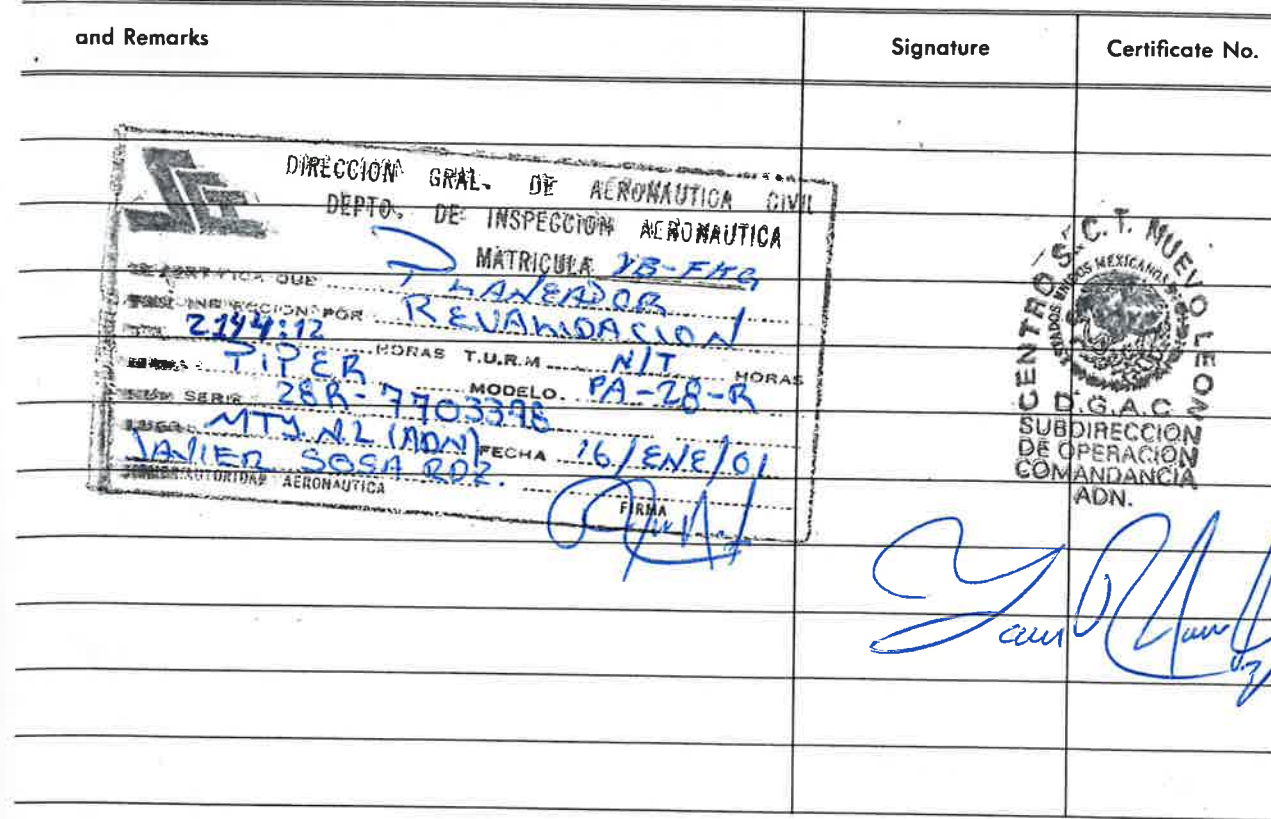 and Remarks
Signature
Certificate No.
DIRECCION GRAL. DE AERONAUTICA CIVIL
DEPTO. DE INSPECCION AERONAUTICA
MATRICULA XB-FHG
SE CERTIFICA QUE PLANEADOR
INSPECCION POR REVALIDACION
2144:12 HORAS T.U.R.M N/T HORAS
PIPER MODELO. PA-28-R
NUM SERIE 28R-7703398
LUGAR MTY N.L (ADN) FECHA 16/ENE/01
JAVIER SOSA RDZ.
AUTORIDAD AERONAUTICA
FIRMA
CENTRO S.C.T. NUEVO LEON
ESTADOS UNIDOS MEXICANOS
D.G.A.C
SUBDIRECCION
DE OPERACION
COMANDANCIA
ADN.